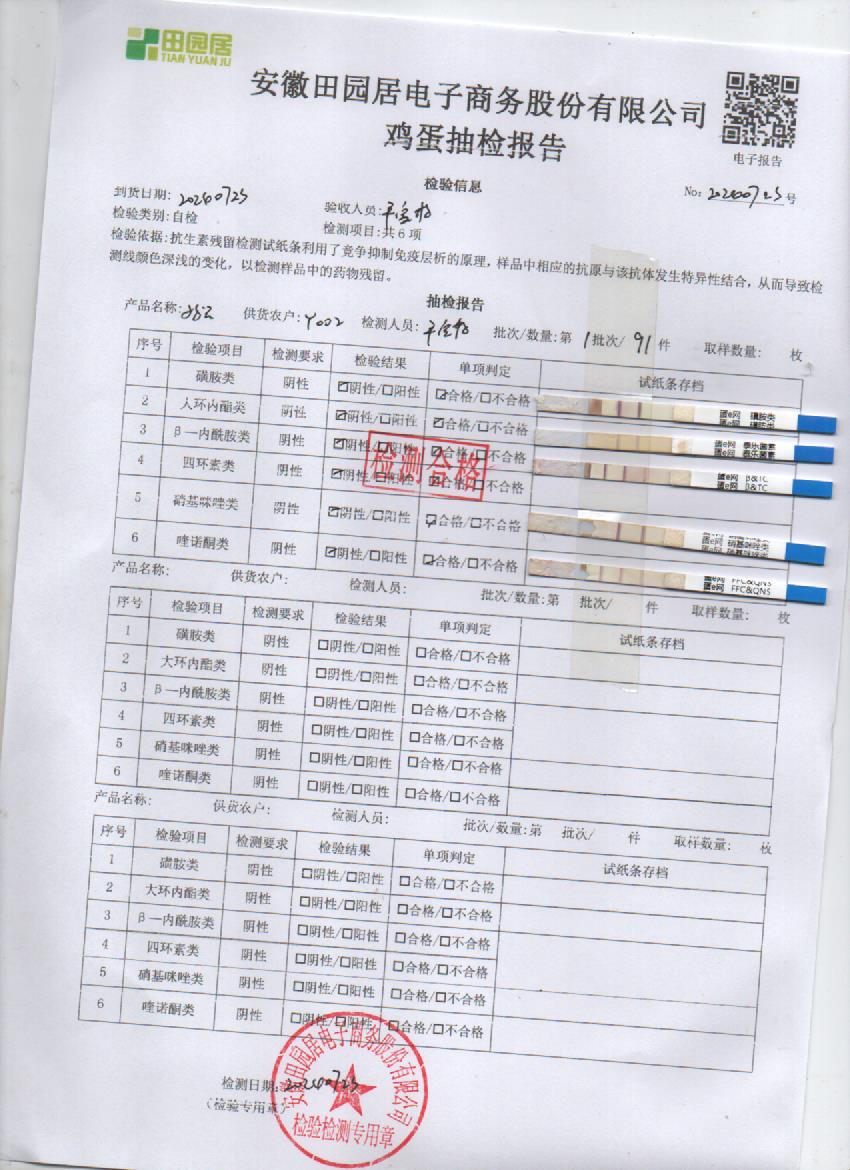 田园居
TIAN YUAN JU
安徽田园居电子商务股份有限公司
鸡蛋抽检报告
电子报告
检验信息
No: 20260725号
到货日期: 20260725
验收人员:
检验类别:自检
检测项目:共6项
检验依据:抗生素残留检测试纸条利用了竞争抑制免疫层析的原理,样品中相应的抗原与该抗体发生特异性结合,从而导致检
测线颜色深浅的变化,以检测样品中的药物残留。
抽检报告
产品名称: 供货农户:Y002 检测人员: 批次/数量:第1批次/91件 取样数量: 枚
序号 检验项目 检测要求 检验结果 单项判定 试纸条存档
1 磺胺类 阴性 ☑阴性/□阳性 ☑合格/□不合格
2 大环内酯类 阴性 ☑阴性/□阳性 ☑合格/□不合格
3 β一内酰胺类 阴性 ☑阴性/□阳性 ☑合格/□不合格
4 四环素类 阴性 ☑阴性/□阳性 ☑合格/□不合格
5 硝基咪唑类 阴性 ☑阴性/□阳性 ☑合格/□不合格
6 喹诺酮类 阴性 ☑阴性/□阳性 ☑合格/□不合格
检测合格
蛋e网 磺胺类
蛋e网 磺胺类
蛋e网 泰乐菌素
蛋e网 泰乐菌素
蛋e网 β&TC
蛋e网 β&TC
蛋e网 硝基咪唑类
蛋e网 硝基咪唑类
蛋e网 FFC&QNS
蛋e网 FFC&QNS
产品名称: 供货农户: 检测人员: 批次/数量:第 批次/ 件 取样数量: 枚
序号 检验项目 检测要求 检验结果 单项判定 试纸条存档
1 磺胺类 阴性 □阴性/□阳性 □合格/□不合格
2 大环内酯类 阴性 □阴性/□阳性 □合格/□不合格
3 β一内酰胺类 阴性 □阴性/□阳性 □合格/□不合格
4 四环素类 阴性 □阴性/□阳性 □合格/□不合格
5 硝基咪唑类 阴性 □阴性/□阳性 □合格/□不合格
6 喹诺酮类 阴性 □阴性/□阳性 □合格/□不合格
产品名称: 供货农户: 检测人员: 批次/数量:第 批次/ 件 取样数量: 枚
序号 检验项目 检测要求 检验结果 单项判定 试纸条存档
1 磺胺类 阴性 □阴性/□阳性 □合格/□不合格
2 大环内酯类 阴性 □阴性/□阳性 □合格/□不合格
3 β一内酰胺类 阴性 □阴性/□阳性 □合格/□不合格
4 四环素类 阴性 □阴性/□阳性 □合格/□不合格
5 硝基咪唑类 阴性 □阴性/□阳性 □合格/□不合格
6 喹诺酮类 阴性 □阴性/□阳性 □合格/□不合格
检测日期: 20260725
(检验专用章)
安徽田园居电子商务股份有限公司
检验检测专用章